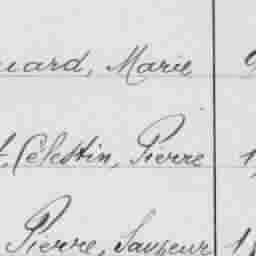 uard, Marie 9
t, Célestin, Pierre 1
Pierre, Sauveur 1